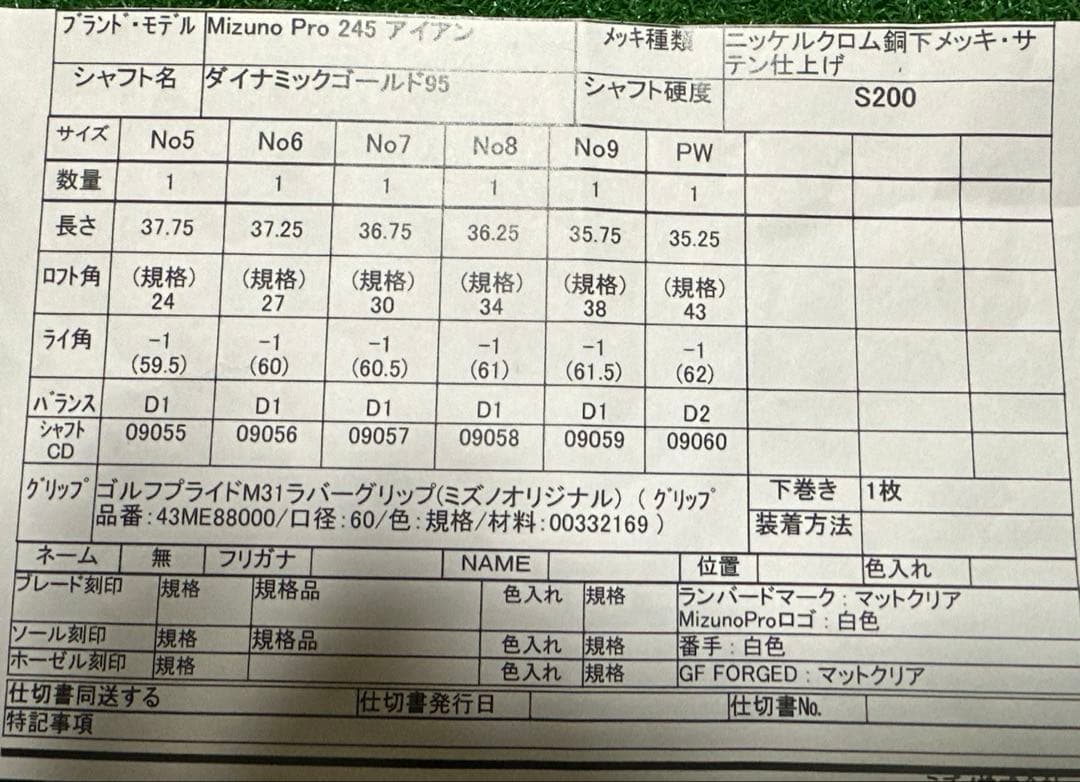 ブランド・モデル Mizuno Pro 245 アイアン メッキ種類 ニッケルクロム銅下メッキ・サ
テン仕上げ
シャフト名 ダイナミックゴールド95 シャフト硬度 S200
サイズ No5 No6 No7 No8 No9 PW
数量 1 1 1 1 1 1
長さ 37.75 37.25 36.75 36.25 35.75 35.25
ロフト角 (規格) (規格) (規格) (規格) (規格) (規格)
24 27 30 34 38 43
ライ角 -1 -1 -1 -1 -1 -1
(59.5) (60) (60.5) (61) (61.5) (62)
バランス D1 D1 D1 D1 D1 D2
シャフト 09055 09056 09057 09058 09059 09060
CD
グリップ ゴルフプライドM31ラバーグリップ(ミズノオリジナル) ( グリップ 下巻き 1枚
品番:43ME88000/口径:60/色:規格/材料:00332169 ) 装着方法
ネーム 無 フリガナ NAME 位置 色入れ
ブレード刻印 規格 規格品 色入れ 規格 ランバードマーク:マットクリア
MizunoProロゴ:白色
ソール刻印 規格 規格品 色入れ 規格 番手:白色
ホーゼル刻印 規格 色入れ 規格 GF FORGED:マットクリア
仕切書同送する 仕切書発行日 仕切書No.
特記事項